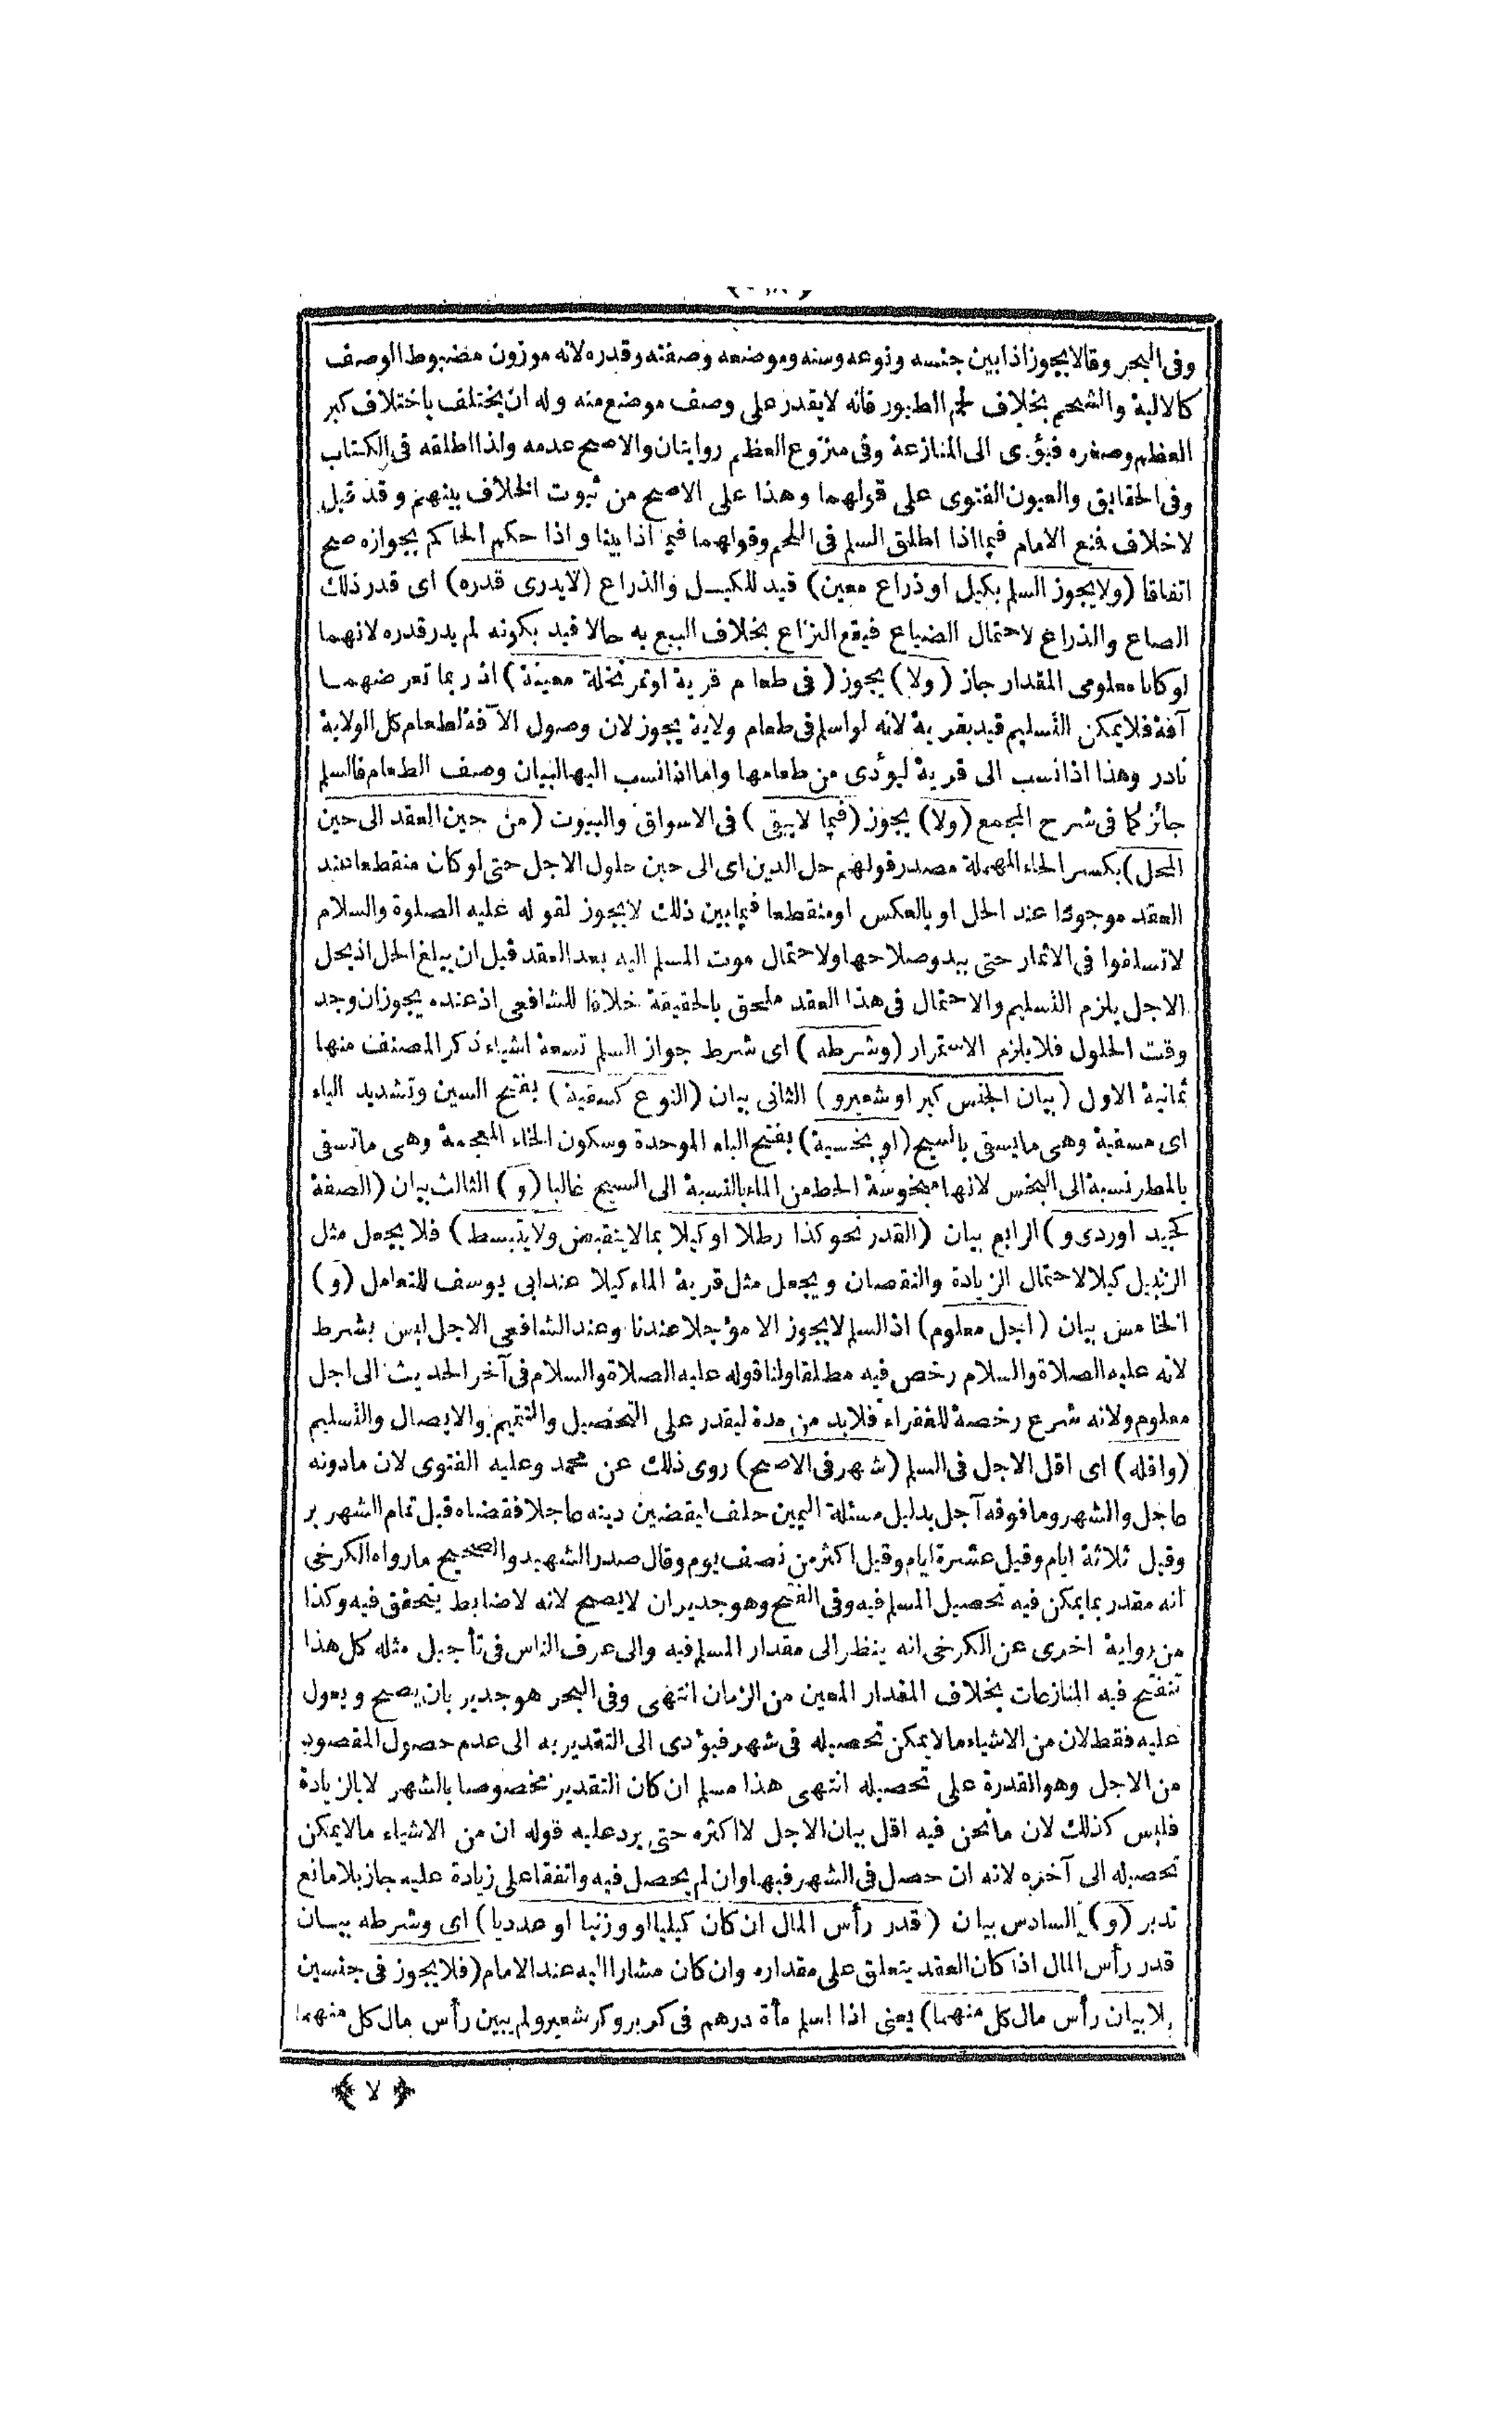 وفى البحر وقالا يجوز اذا بين جنسه ونوعه وسنه وموضعه وصفته وقدره لانه موزون مضبوط الوصف
كالالية والشحم بخلاف لحم الطيور فانه لا يقدر على وصف موضع منه وله ان يختلف باختلاف كبر
العظم وصغره فيؤدى الى المنازعة وفى منزوع العظم روايتان والاصح عدمه ولذا اطلقه فى الكتاب
وفى الحقايق والعيون الفتوى على قولهما وهذا على الاصح من ثبوت الخلاف بينهم وقد قيل
لا خلاف فمنع الامام فيما اذا اطلق السلم فى اللحم وقولهما فيما اذا بينا واذا حكم الحاكم بجوازه صح
اتفاقا (ولا يجوز السلم بكيل او ذراع معين) قيد للكيل والذراع (لا يدرى قدره) اى قدر ذلك
الصاع والذراع لاحتمال الضياع فيقع النزاع بخلاف البيع به حالا قيد بكونه لم يدر قدره لانهما
لو كانا معلومى المقدار جاز (ولا) يجوز (فى طعام قرية او تمر نخلة معينة) اذ ربما تعرضهما
آفة فلا يمكن التسليم قيد بقرية لانه لو اسلم فى طعام ولاية يجوز لان وصول الآفة لطعام كل الولاية
نادر وهذا اذا نسب الى قرية ليؤدى من طعامها واما اذا نسب اليها لبيان وصف الطعام فالسلم
جائز كما فى شرح المجمع (ولا) يجوز (فيما لا يبقى) فى الاسواق والبيوت (من حين العقد الى حين
المحل) بكسر الحاء المهملة مصدر قولهم حل الدين اى الى حين حلول الاجل حتى لو كان منقطعا عند
العقد موجودا عند الحل او بالعكس او منقطعا فيما بين ذلك لا يجوز لقوله عليه الصلوة والسلام
لا تسلفوا فى الاثمار حتى يبدو صلاحها ولاحتمال موت المسلم اليه بعد العقد قبل ان يبلغ الحل اذ يحل
الاجل يلزم التسليم والاحتمال فى هذا العقد ملحق بالحقيقة خلافا للشافعى اذ عنده يجوز ان وجد
وقت الحلول فلا يلزم الاستمرار (وشرطه) اى شرط جواز السلم تسعة اشياء ذكر المصنف منها
ثمانية الاول (بيان الجنس كبر او شعير و) الثانى بيان (النوع كسقية) بفتح السين وتشديد الياء
اى مسقية وهى ما يسقى بالسيح (او بخسية) بفتح الباء الموحدة وسكون الخاء المعجمة وهى ما تسقى
بالمطر نسبة الى البخس لانها مبخوسة الحظ من الماء بالنسبة الى السيح غالبا (و) الثالث بيان (الصفة
كجيد او ردى و) الرابع بيان (القدر نحو كذا رطلا او كيلا بما لا ينقبض ولا ينبسط) فلا يجعل مثل
الزنبيل كيلا لاحتمال الزيادة والنقصان ويجعل مثل قربة الماء كيلا عند ابى يوسف للتعامل (و)
الخامس بيان (اجل معلوم) اذ السلم لا يجوز الا مؤجلا عندنا وعند الشافعى الاجل ليس بشرط
لانه عليه الصلاة والسلام رخص فيه مطلقا ولنا قوله عليه الصلاة والسلام فى آخر الحديث الى اجل
معلوم ولانه شرع رخصة للفقراء فلا بد من مدة ليقدر على التحصيل والتتميم والايصال والتسليم
(واقله) اى اقل الاجل فى السلم (شهر فى الاصح) روى ذلك عن محمد وعليه الفتوى لان مادونه
عاجل والشهر وما فوقه آجل بدليل مسئلة اليمين حلف ليقضين دينه عاجلا فقضاه قبل تمام الشهر بر
وقيل ثلاثة ايام وقيل عشرة ايام وقيل اكثر من نصف يوم وقال صدر الشهيد والصحيح ما رواه الكرخى
انه مقدر بما يمكن فيه تحصيل المسلم فيه وفى الفتح وهو جدير ان لا يصح لانه لا ضابط يتحقق فيه وكذا
من رواية اخرى عن الكرخى انه ينظر الى مقدار المسلم فيه والى عرف الناس فى تأجيل مثله كل هذا
تنفتح فيه المنازعات بخلاف المقدار المعين من الزمان انتهى وفى البحر هو جدير بان يصح ويعول
عليه فقط لان من الاشياء ما لا يمكن تحصيله فى شهر فيؤدى الى التقدير به الى عدم حصول المقصود
من الاجل وهو القدرة على تحصيله انتهى هذا مسلم ان كان التقدير مخصوصا بالشهر لا بالزيادة
فليس كذلك لان ما نحن فيه اقل بيان الاجل لا اكثره حتى يرد عليه قوله ان من الاشياء ما لا يمكن
تحصيله الى آخره لانه ان حصل فى الشهر فبها وان لم يحصل فيه واتفقا على زيادة عليه جاز بلا مانع
تدبر (و) السادس بيان (قدر رأس المال ان كان كيليا او وزنيا او عدديا) اى وشرطه بيان
قدر رأس المال اذا كان العقد يتعلق على مقداره وان كان مشارا اليه عند الامام (فلا يجوز فى جنسين
بلا بيان رأس مال كل منهما) يعنى اذا اسلم مأة درهم فى كر بر وكر شعير ولم يبين رأس مال كل منهما
﴿ لا ﴾